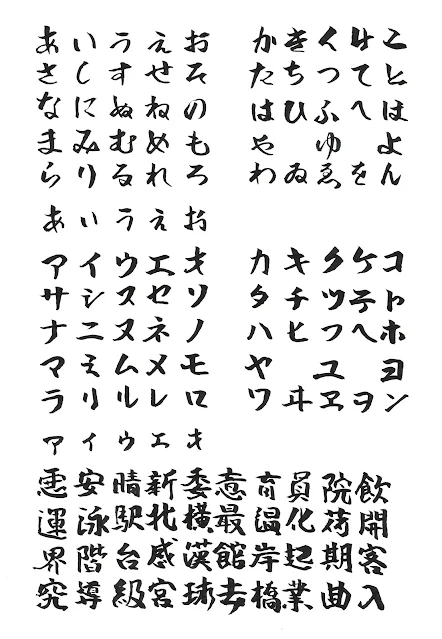 あいうえお かきくけこ
さしすせそ たちつてと
なにぬねの はひふへほ
まみむめも や ゆ よ
らりるれろ わゐゑをん
ぁぃぅぇぉ
アイウエオ カキクケコ
サシスセソ タチツテト
ナニヌネノ ハヒフヘホ
マミムメモ ヤ ユ ヨ
ラリルレロ ワヰヱヲン
ァィゥェォ
悪安晴新委意育員院飲
運泳駅北横最温化荷開
界階台感漢館岸起期客
究導級宮球去橋業曲入